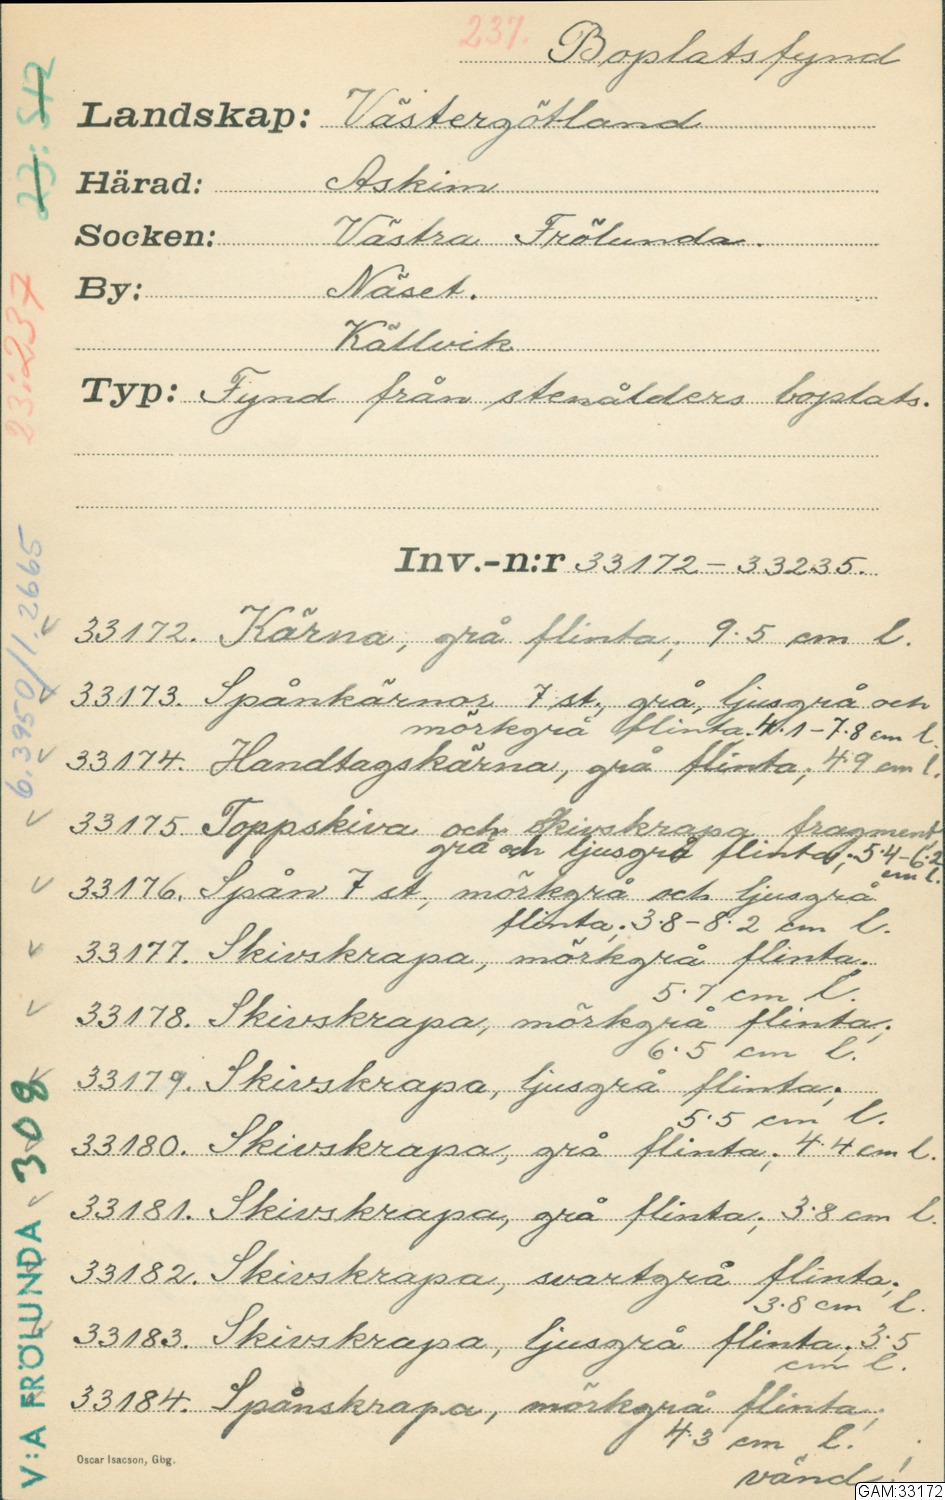 237.
Boplatsfynd
Landskap: Västergötland
Härad: Askim
Socken: Västra Frölunda.
By: Näset.
Källvik
Typ: Fynd från stenålders boplats.
Inv.-n:r 33172-33235.
33172. Kärna, grå flinta; 9.5 cm l.
33173. Spånkärnor 7 st., grå, ljusgrå och
mörkgrå flinta. 4.1-7.8 cm l.
33174. Handtagskärna, grå flinta; 4.9 cm l.
33175 Toppskiva och Skivskrapa fragment,
grå och ljusgrå flinta; 5.4-6.2
cm l.
33176. Spån 7 st, mörkgrå och ljusgrå
flinta; 3.8-8.2 cm l.
33177. Skivskrapa, mörkgrå flinta;
5.7 cm l.
33178. Skivskrapa, mörkgrå flinta;
6.5 cm l.
33179. Skivskrapa, ljusgrå flinta;
5.5 cm l.
33180. Skivskrapa, grå flinta; 4.4 cm l.
33181. Skivskrapa, grå flinta; 3.8 cm l.
33182. Skivskrapa, svartgrå flinta;
3.8 cm l.
33183. Skivskrapa, ljusgrå flinta; 3.5
cm l.
33184. Spånskrapa, mörkgrå flinta;
4.3 cm l.
vänd!
Oscar Isacson, Gbg.
23:512
23:237
6.3950/1.2665
V:A FRÖLUNDA 308
GAM:33172